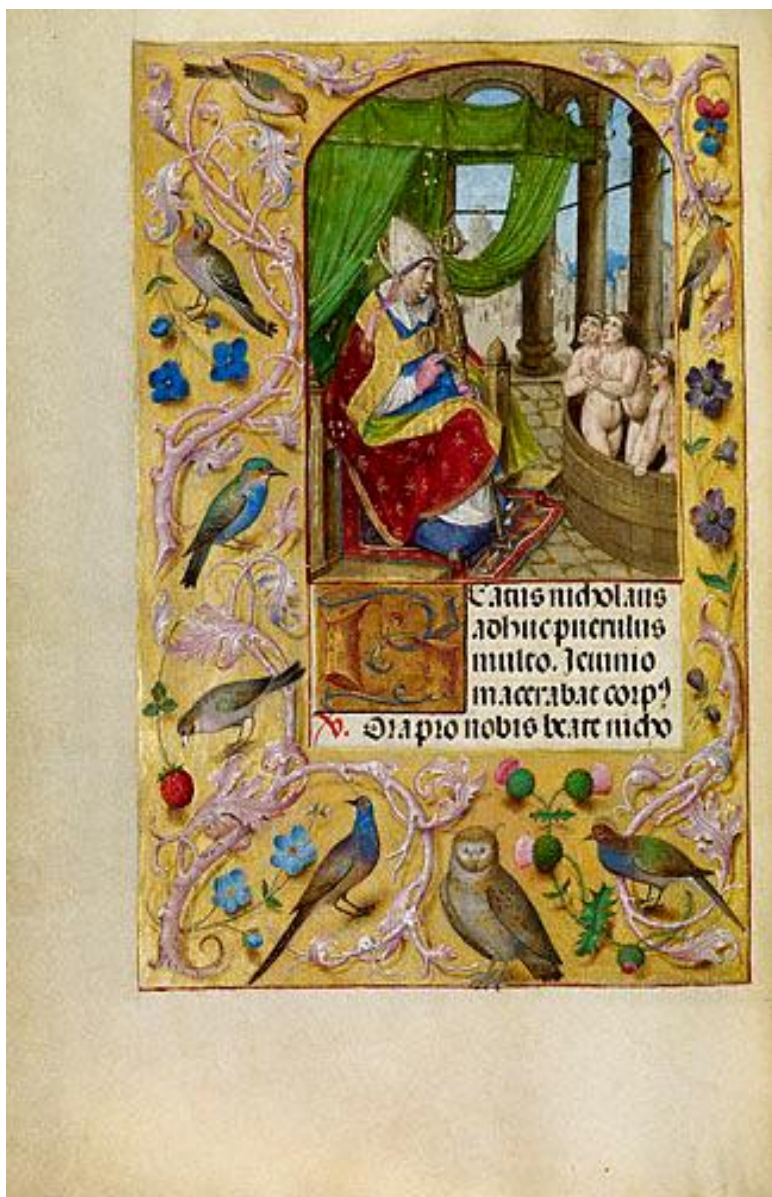 Beatus nicholaus
adhuc puerulus
multo. Ieiunio
macerabat corpꝰ
V. Ora pro nobis beate nicho